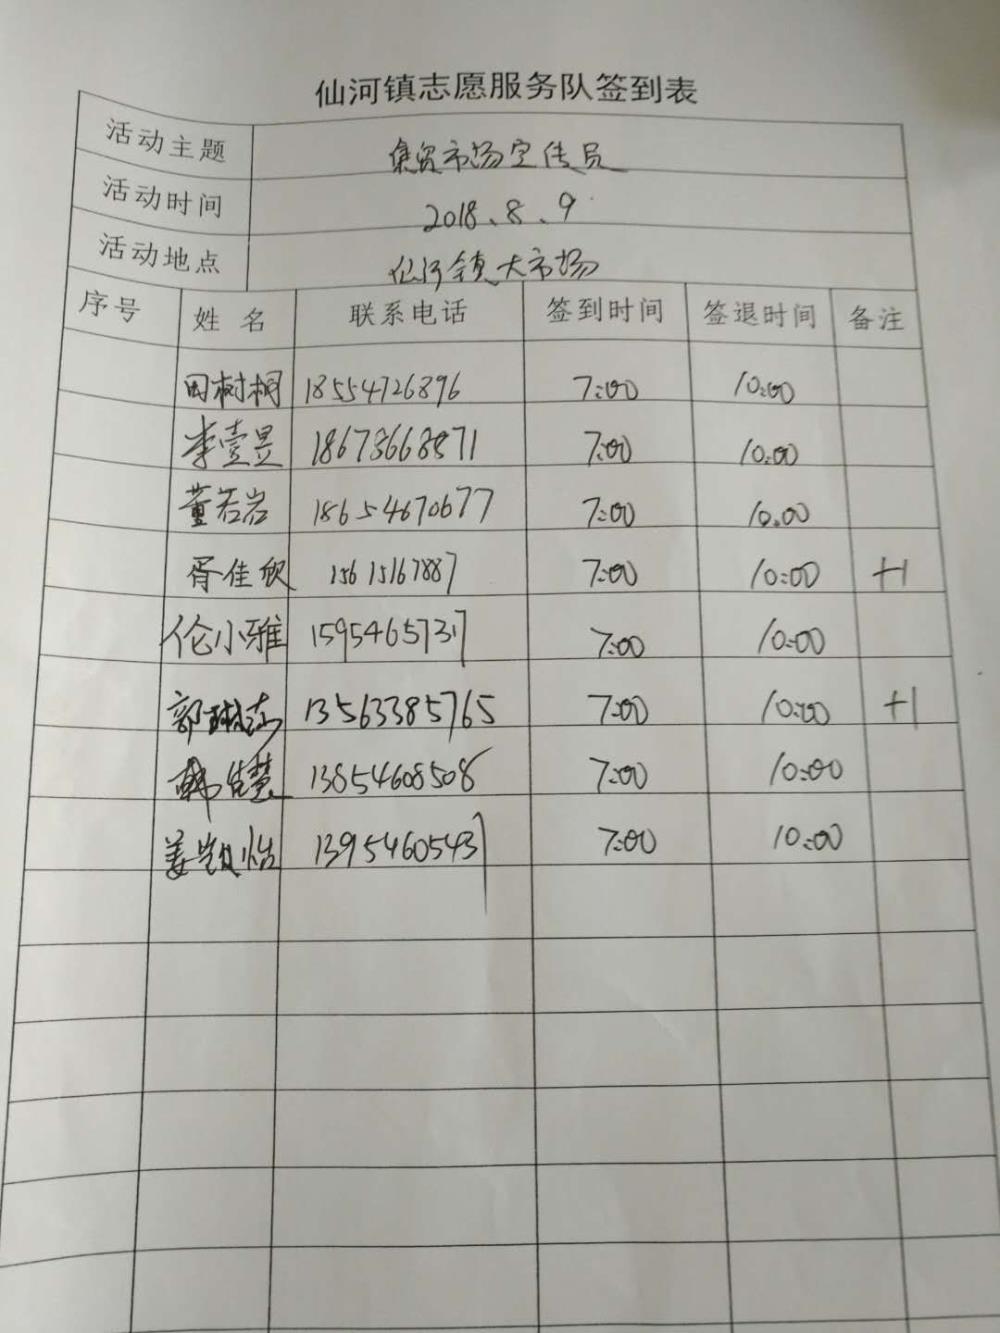 仙河镇志愿服务队签到表
活动主题 集贸市场宣传员
活动时间 2018.8.9
活动地点 仙河镇大市场
序号 姓名 联系电话 签到时间 签退时间 备注
田树桐 18554726896 7:00 10:00
李壹昱 18678668871 7:00 10:00
董若岩 18654670677 7:00 10:00
胥佳欣 15615167887 7:00 10:00 +1
伦小雅 15954657317 7:00 10:00
郭琳 13563385765 7:00 10:00 +1
韩佳慧 13854608508 7:00 10:00
姜凯怡 13954605431 7:00 10:00